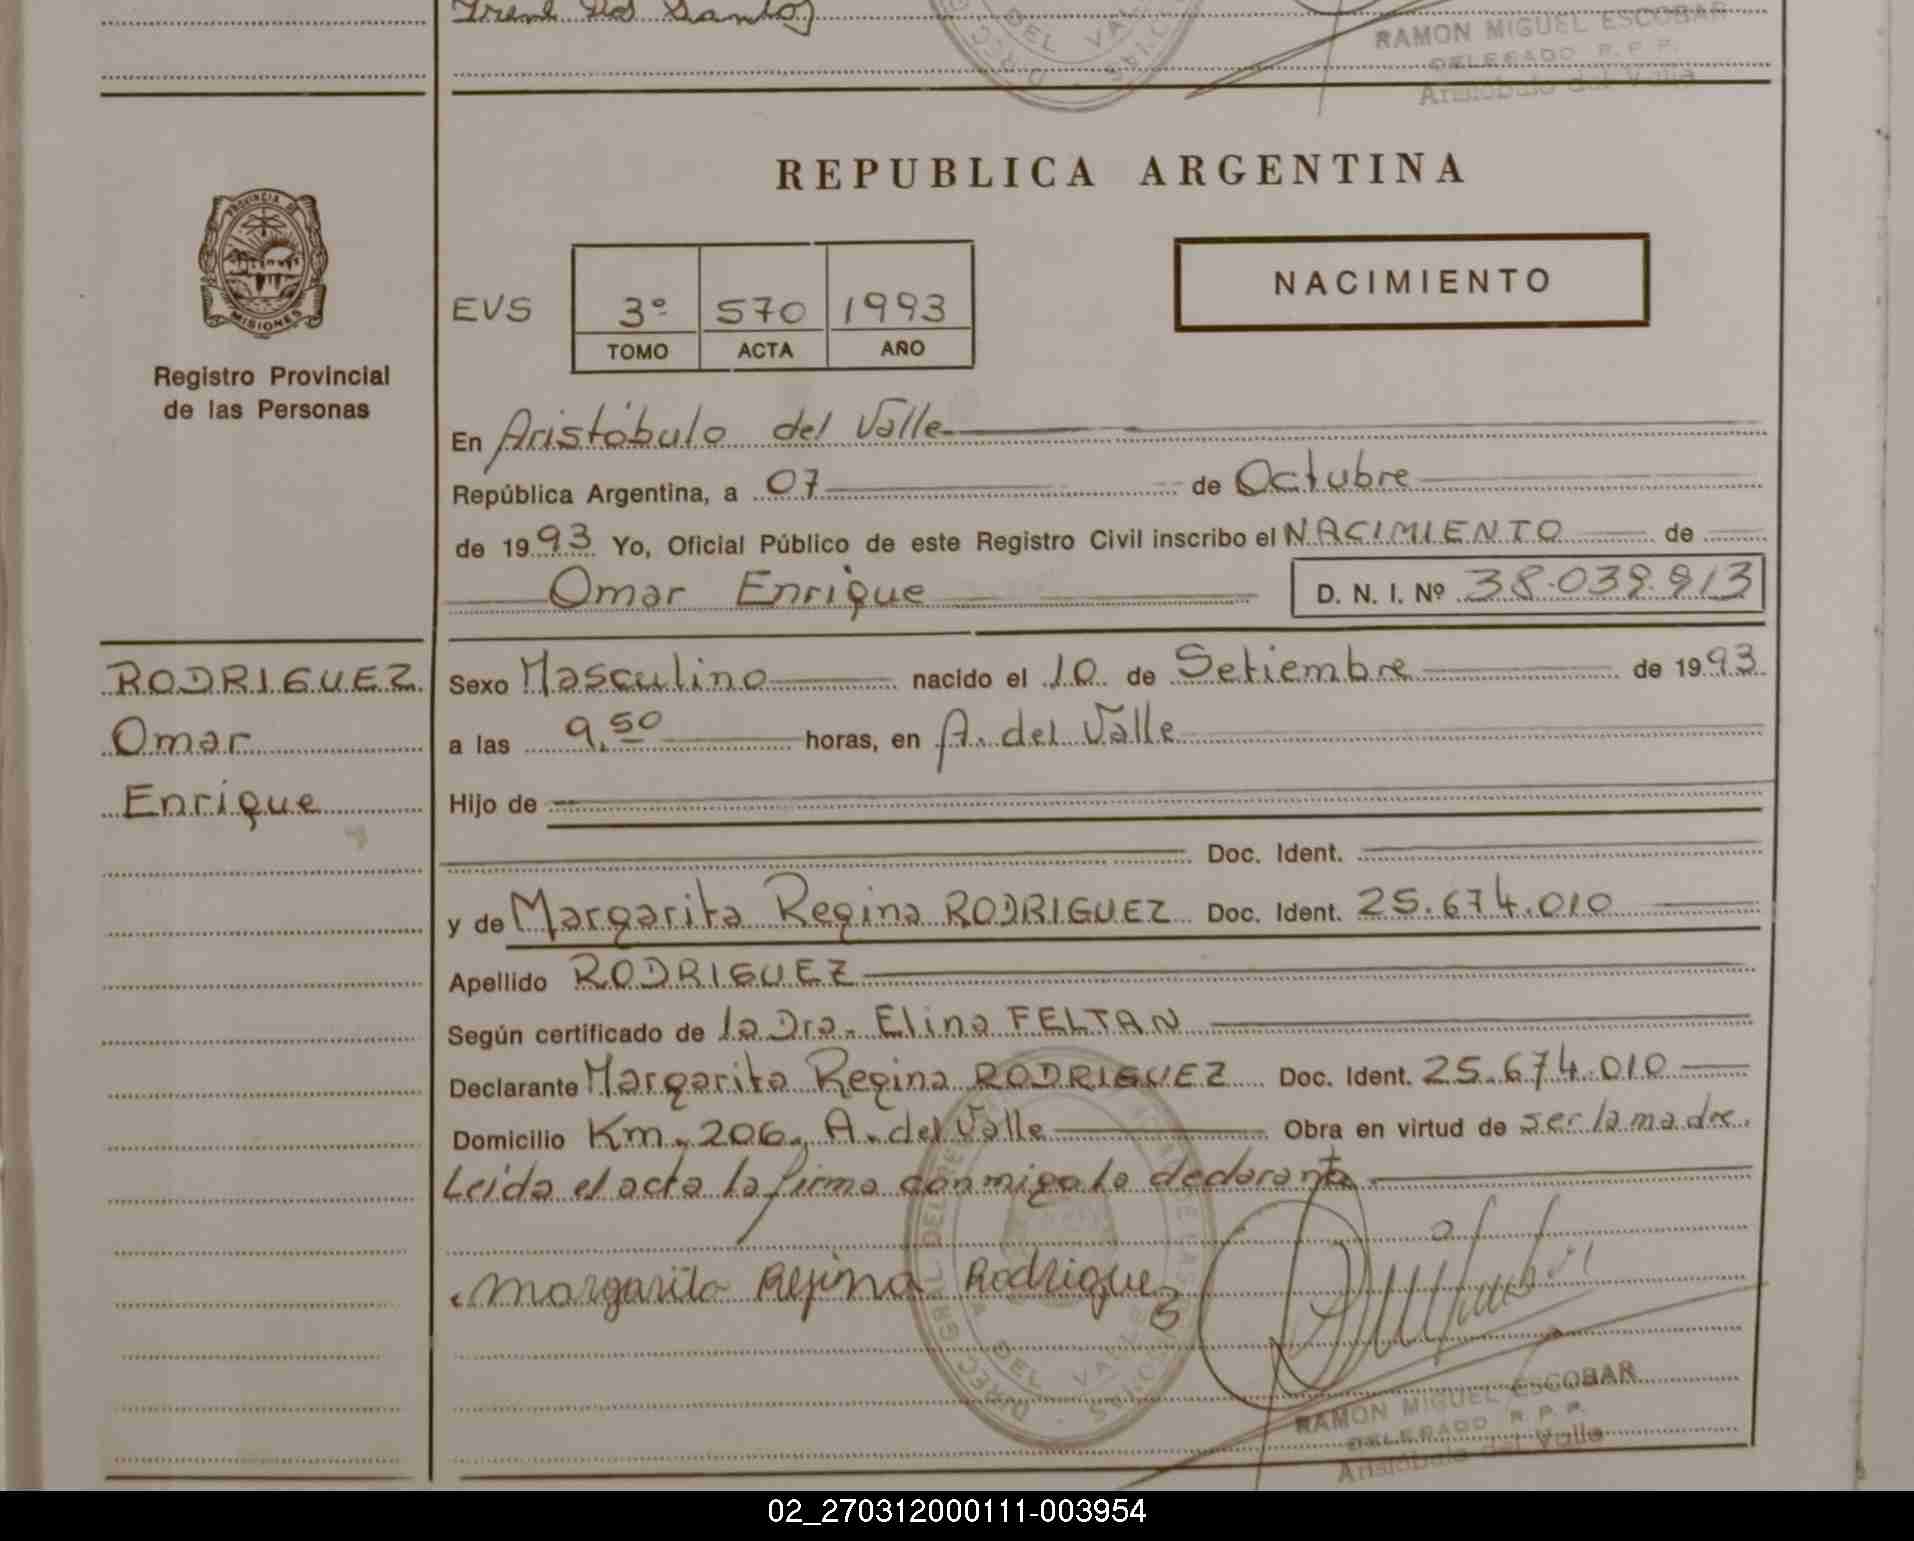 Irene Dos Santos
RAMON MIGUEL ESCOBAR
DELEGADO R. P. P.
Aristóbulo del Valle
DEL VALLE
PROVINCIA DE
MISIONES
Registro Provincial
de las Personas
REPUBLICA ARGENTINA
NACIMIENTO
EVS
3º 570 1993
TOMO ACTA AÑO
En Aristóbulo del Valle
República Argentina, a 07 de Octubre
de 1993 Yo, Oficial Público de este Registro Civil inscribo el NACIMIENTO de
Omar Enrique D. N. I. Nº 38.039.913
RODRIGUEZ
Omar
Enrique
Sexo Masculino nacido el 10 de Setiembre de 1993
a las 9,50 horas, en A. del Valle
Hijo de
Doc. Ident.
y de Margarita Regina RODRIGUEZ Doc. Ident. 25.674.010
Apellido RODRIGUEZ
Según certificado de la Dra. Elina FELTAN
Declarante Margarita Regina RODRIGUEZ Doc. Ident. 25.674.010
Domicilio Km. 206, A. del Valle Obra en virtud de ser la madre.
Leida el acta la firma conmigo la declarante
Margarita Regina Rodriguez
DEL VALLE
RAMON MIGUEL ESCOBAR
DELEGADO R. P. P.
Aristóbulo del Valle
02_270312000111-003954